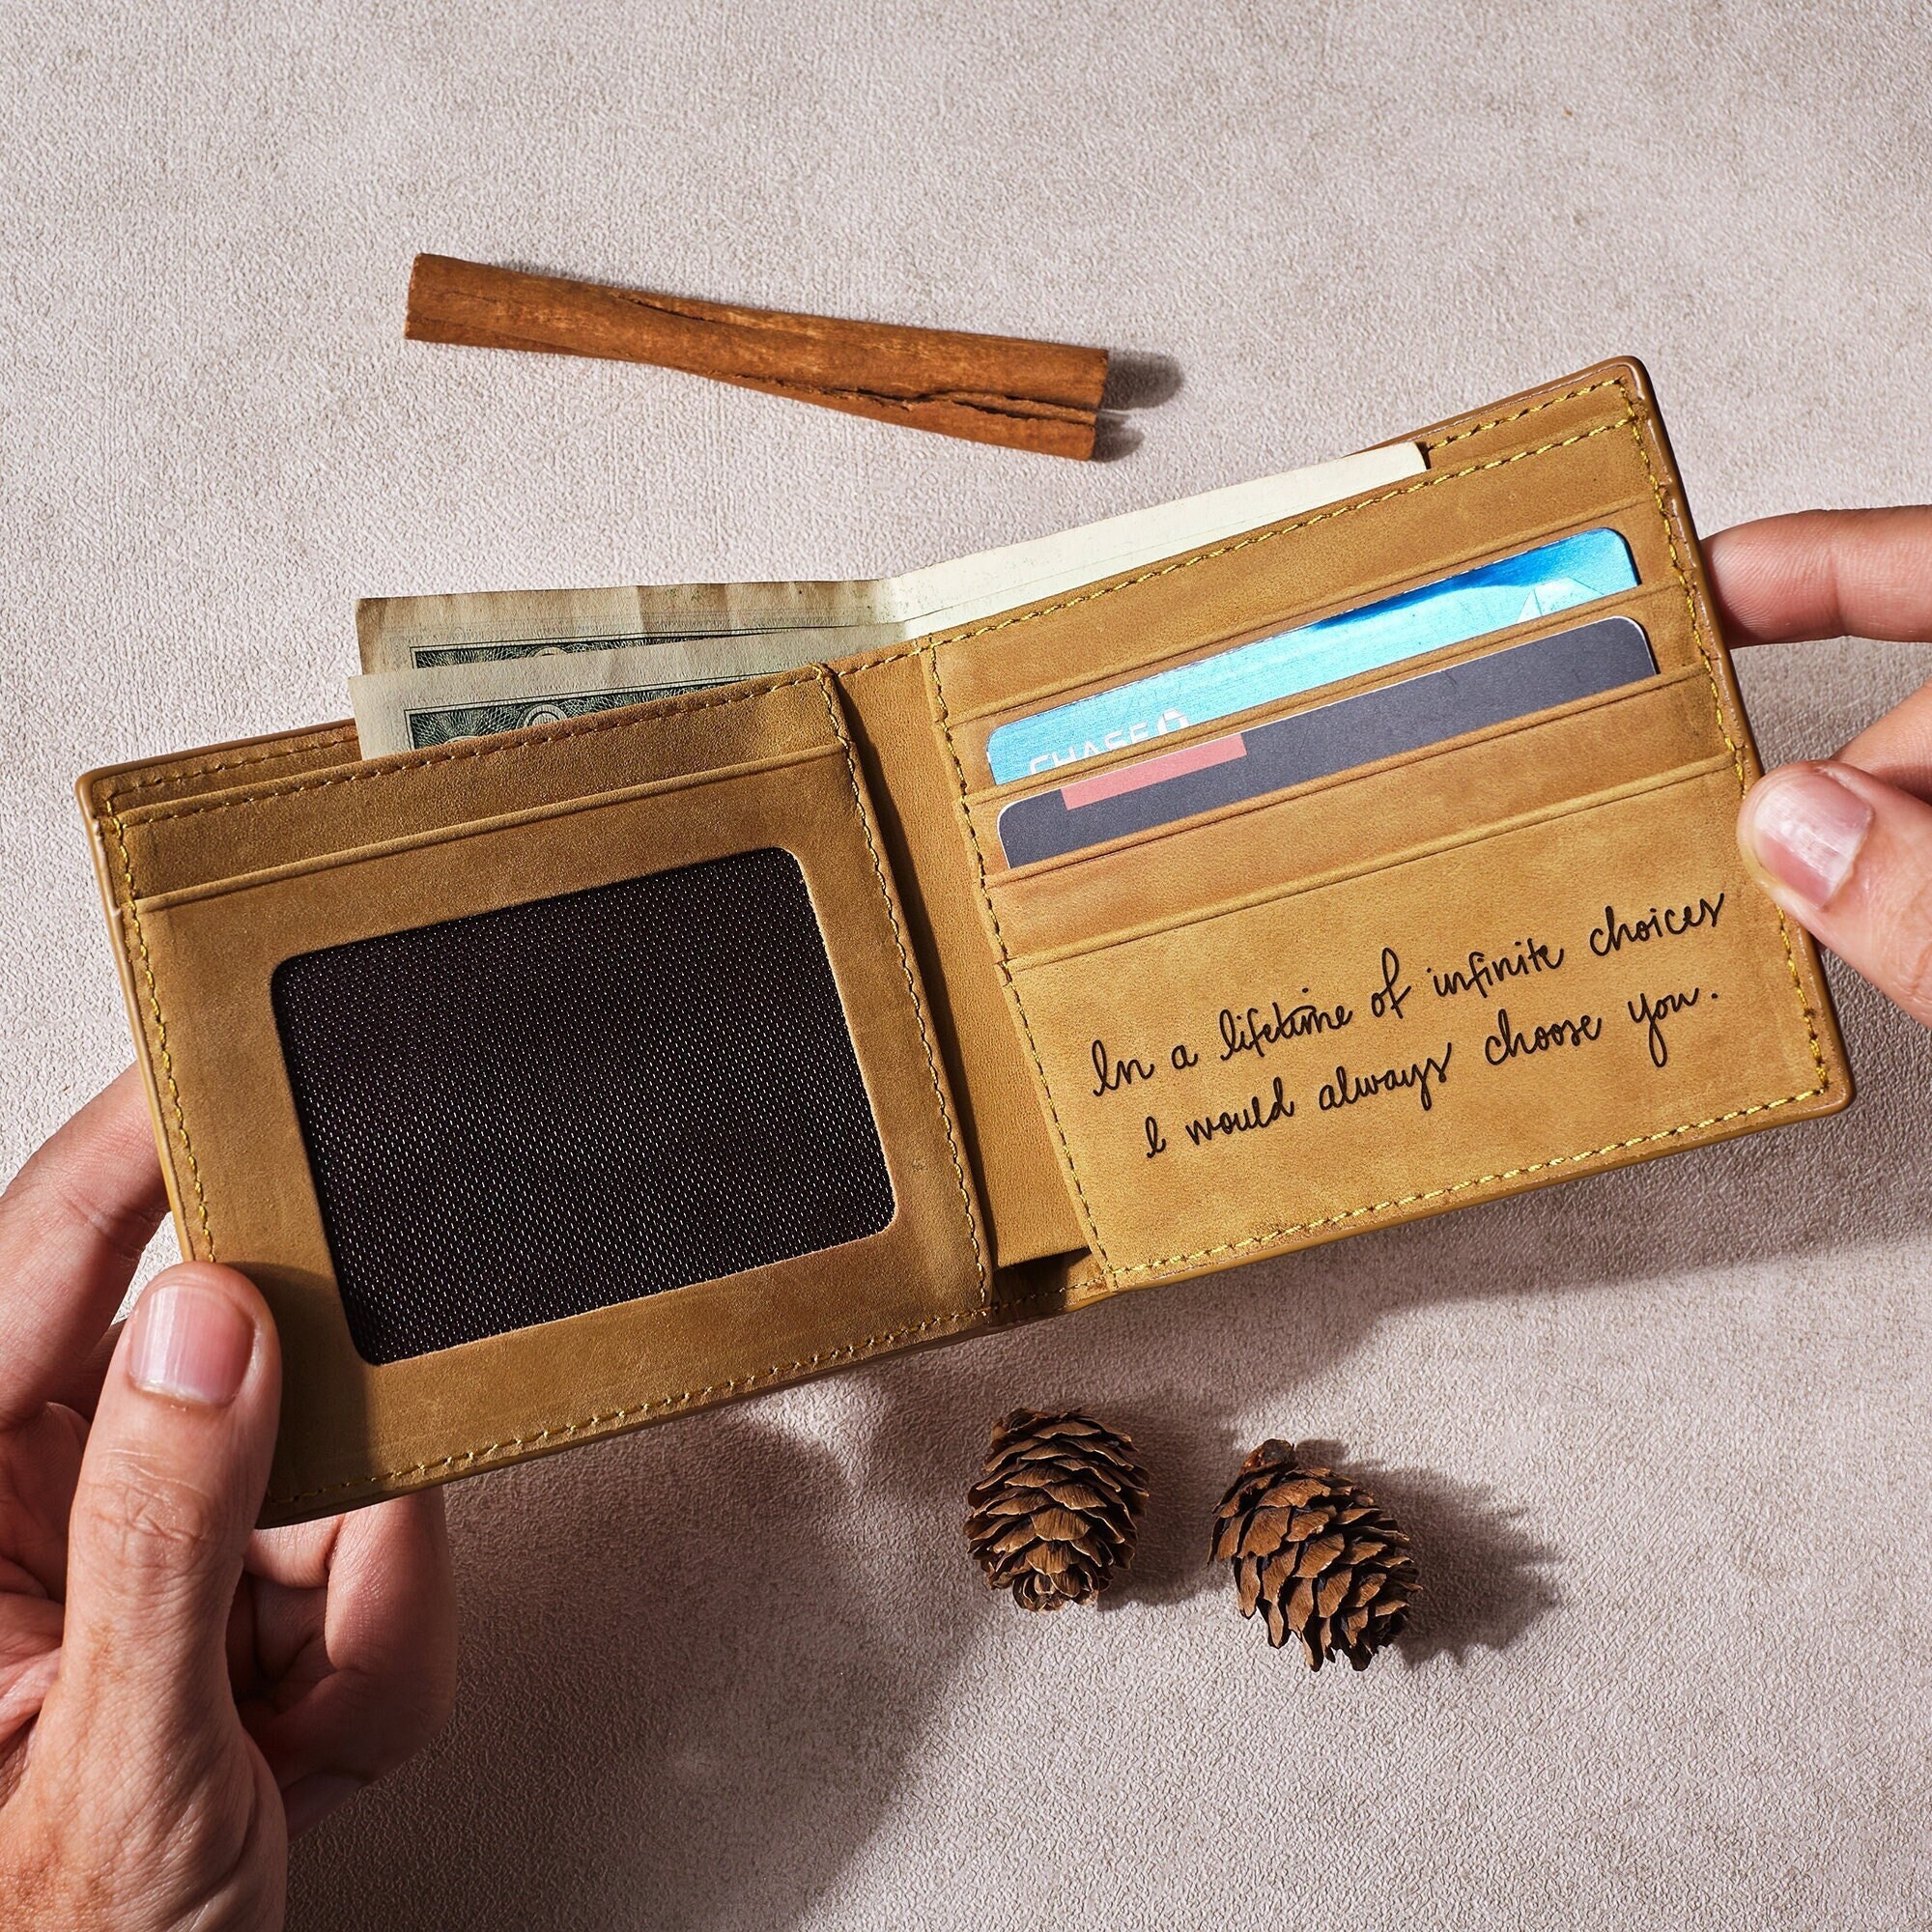 CHASE
In a lifetime of infinite choices
I would always choose you.